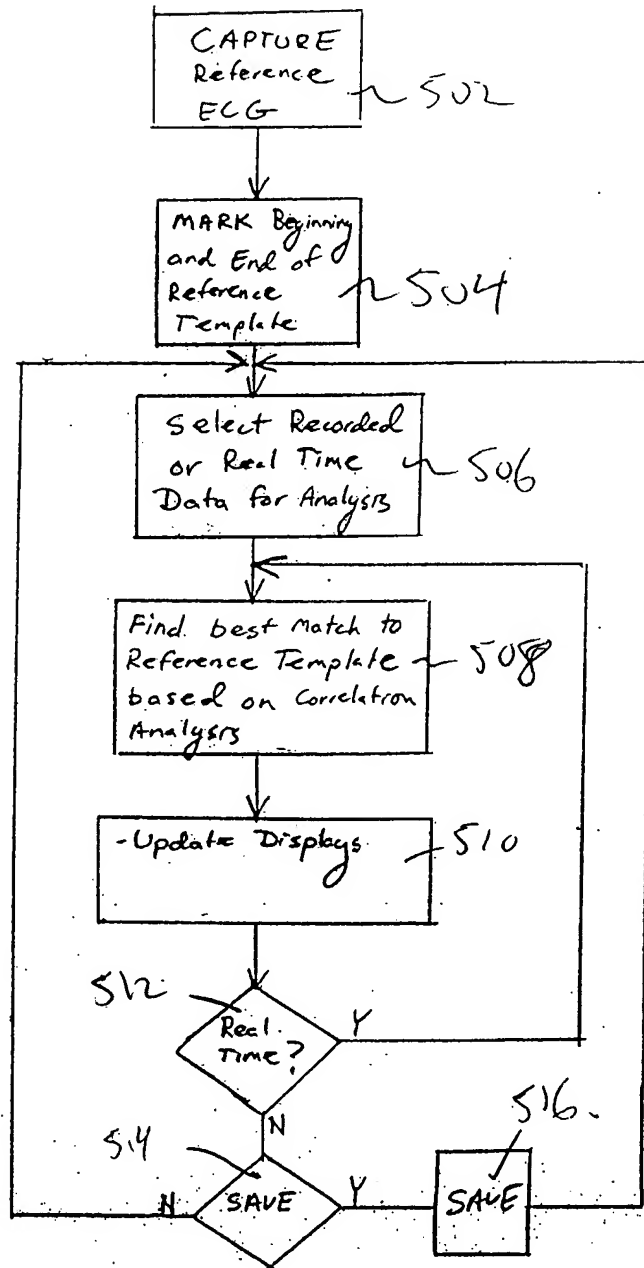 CAPTURE
Reference
ECG
502
MARK Beginning
and End of
Reference
Template
504
Select Recorded
or Real Time
Data for Analysis
506
Find best Match to
Reference Template
based on Correlation
Analysis
508
-Update Displays
510
512
Real
Time?
Y
N
514
SAVE
N
Y
516.
SAVE